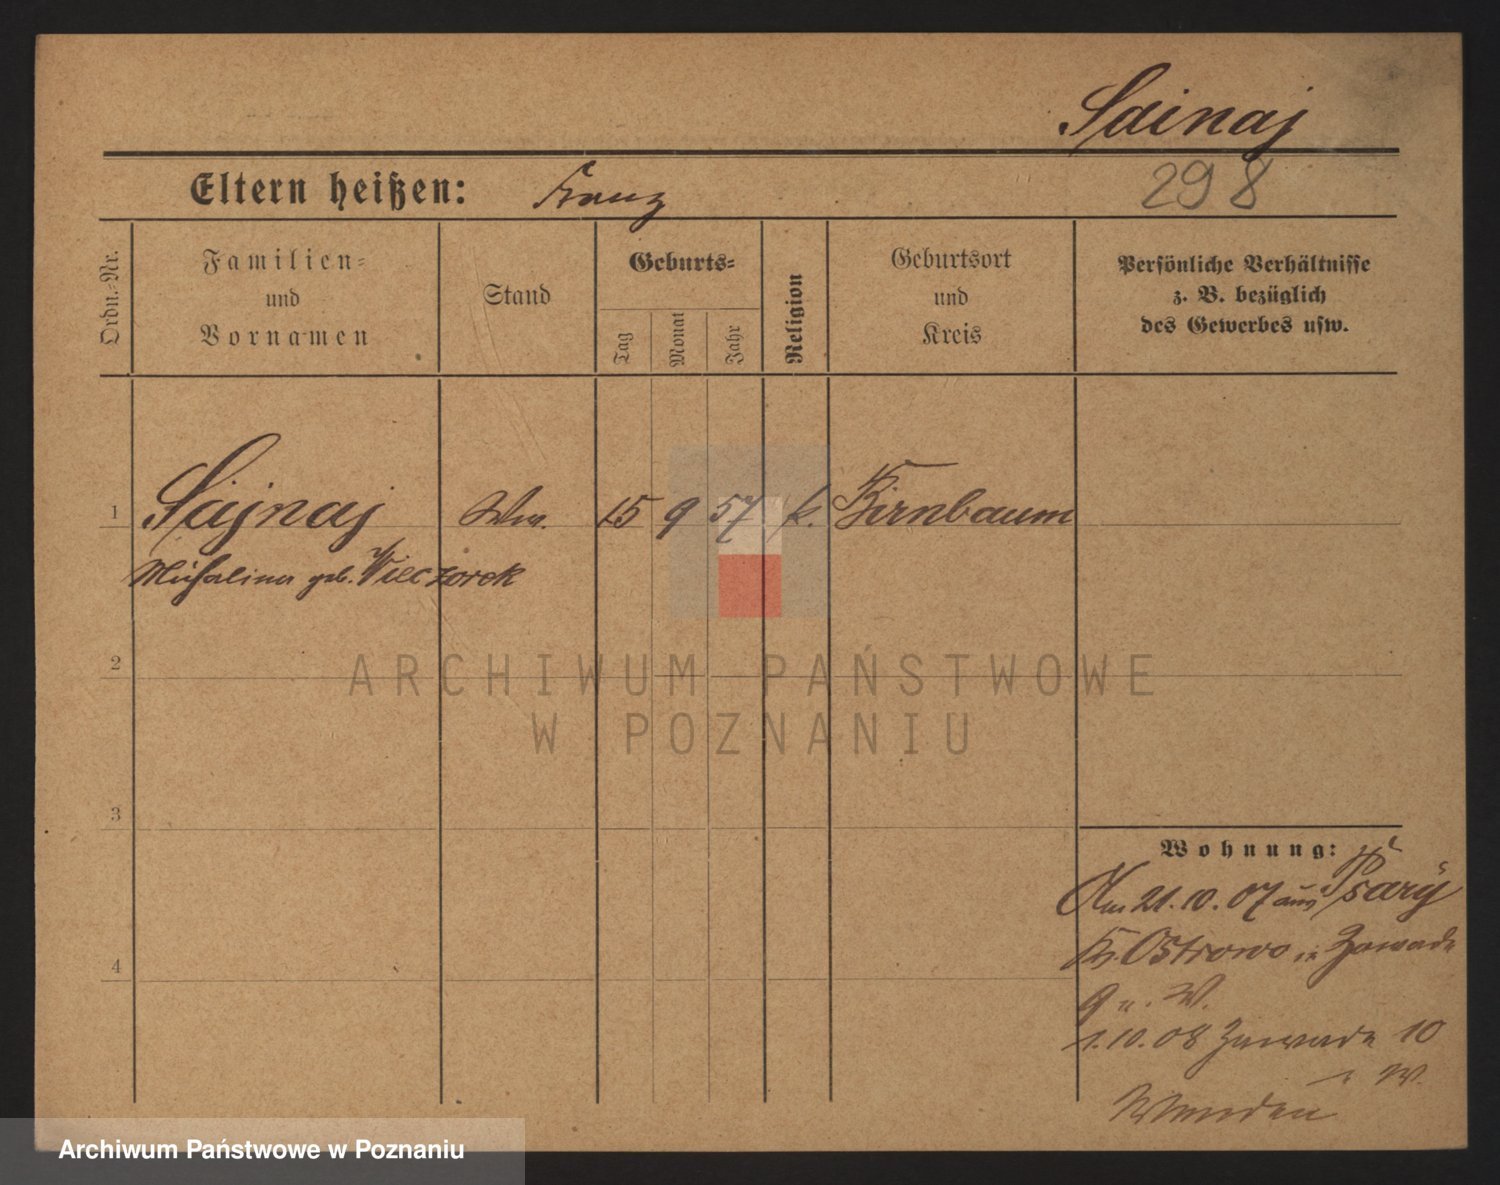 Sainaj
Eltern heißen: Franz 298
Ordn.-Nr.
Familien-
und
Vornamen
Stand
Geburts-
Tag
Monat
Jahr
Religion
Geburtsort
und
Kreis
Persönliche Verhältnisse
z. B. bezüglich
des Gewerbes usw.
1 Sajnaj Ww. 15 9 57 k. Birnbaum
geb. Wilczorek
2
ARCHIWUM PAŃSTWOWE
W POZNANIU
3
Wohnung:
Am 21.10.07 aus Psary
Kr. Ostrowo in Zawade
9 u. W.
4
1.10.08 Zawade 10
W.
Archiwum Państwowe w Poznaniu